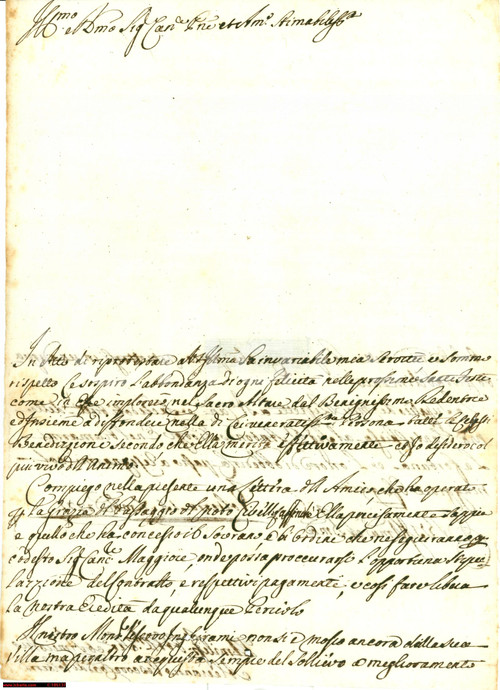 Ill.mo e R.mo Sig.r Can.co P.ne et Am.o Stimabiliss.o
In atto di ripprotestare a V.S. Ill.ma la invariabile mia Servitù e sommo
rispetto Le sospiro l'abbondanza di ogni felicità nelle prossime Sante Feste
come le imploro nel Sacro Altare dal Benignissimo Redentore
ed insieme a diffondere nella di Lei veneratiss.ma Persona tutte le
Benedizioni secondo che Ella merita effettivamente ed io desidero col
più vivo dell'Animo
Compiego nella presente una Lettera dell'Amico che ha operato
la grazia del Passaggio del noto acciò Ella precisamente sappia
e quello che ha concesso il Sovrano e li ordini che ne seguiranno a
codesto Sig.r Canc.e Maggiore, onde possa proccurarsi l'opportuna Stipu
lazzione del Contratto, e respettivi pagamenti, e così fare libera
la nostra Eredità da qualunque Pericolo
Il nostro Mons.r Vescovo Inghirami non si è mosso ancora dalla sua
Villa ma peraltro acquista sempre del sollievo e miglioramento